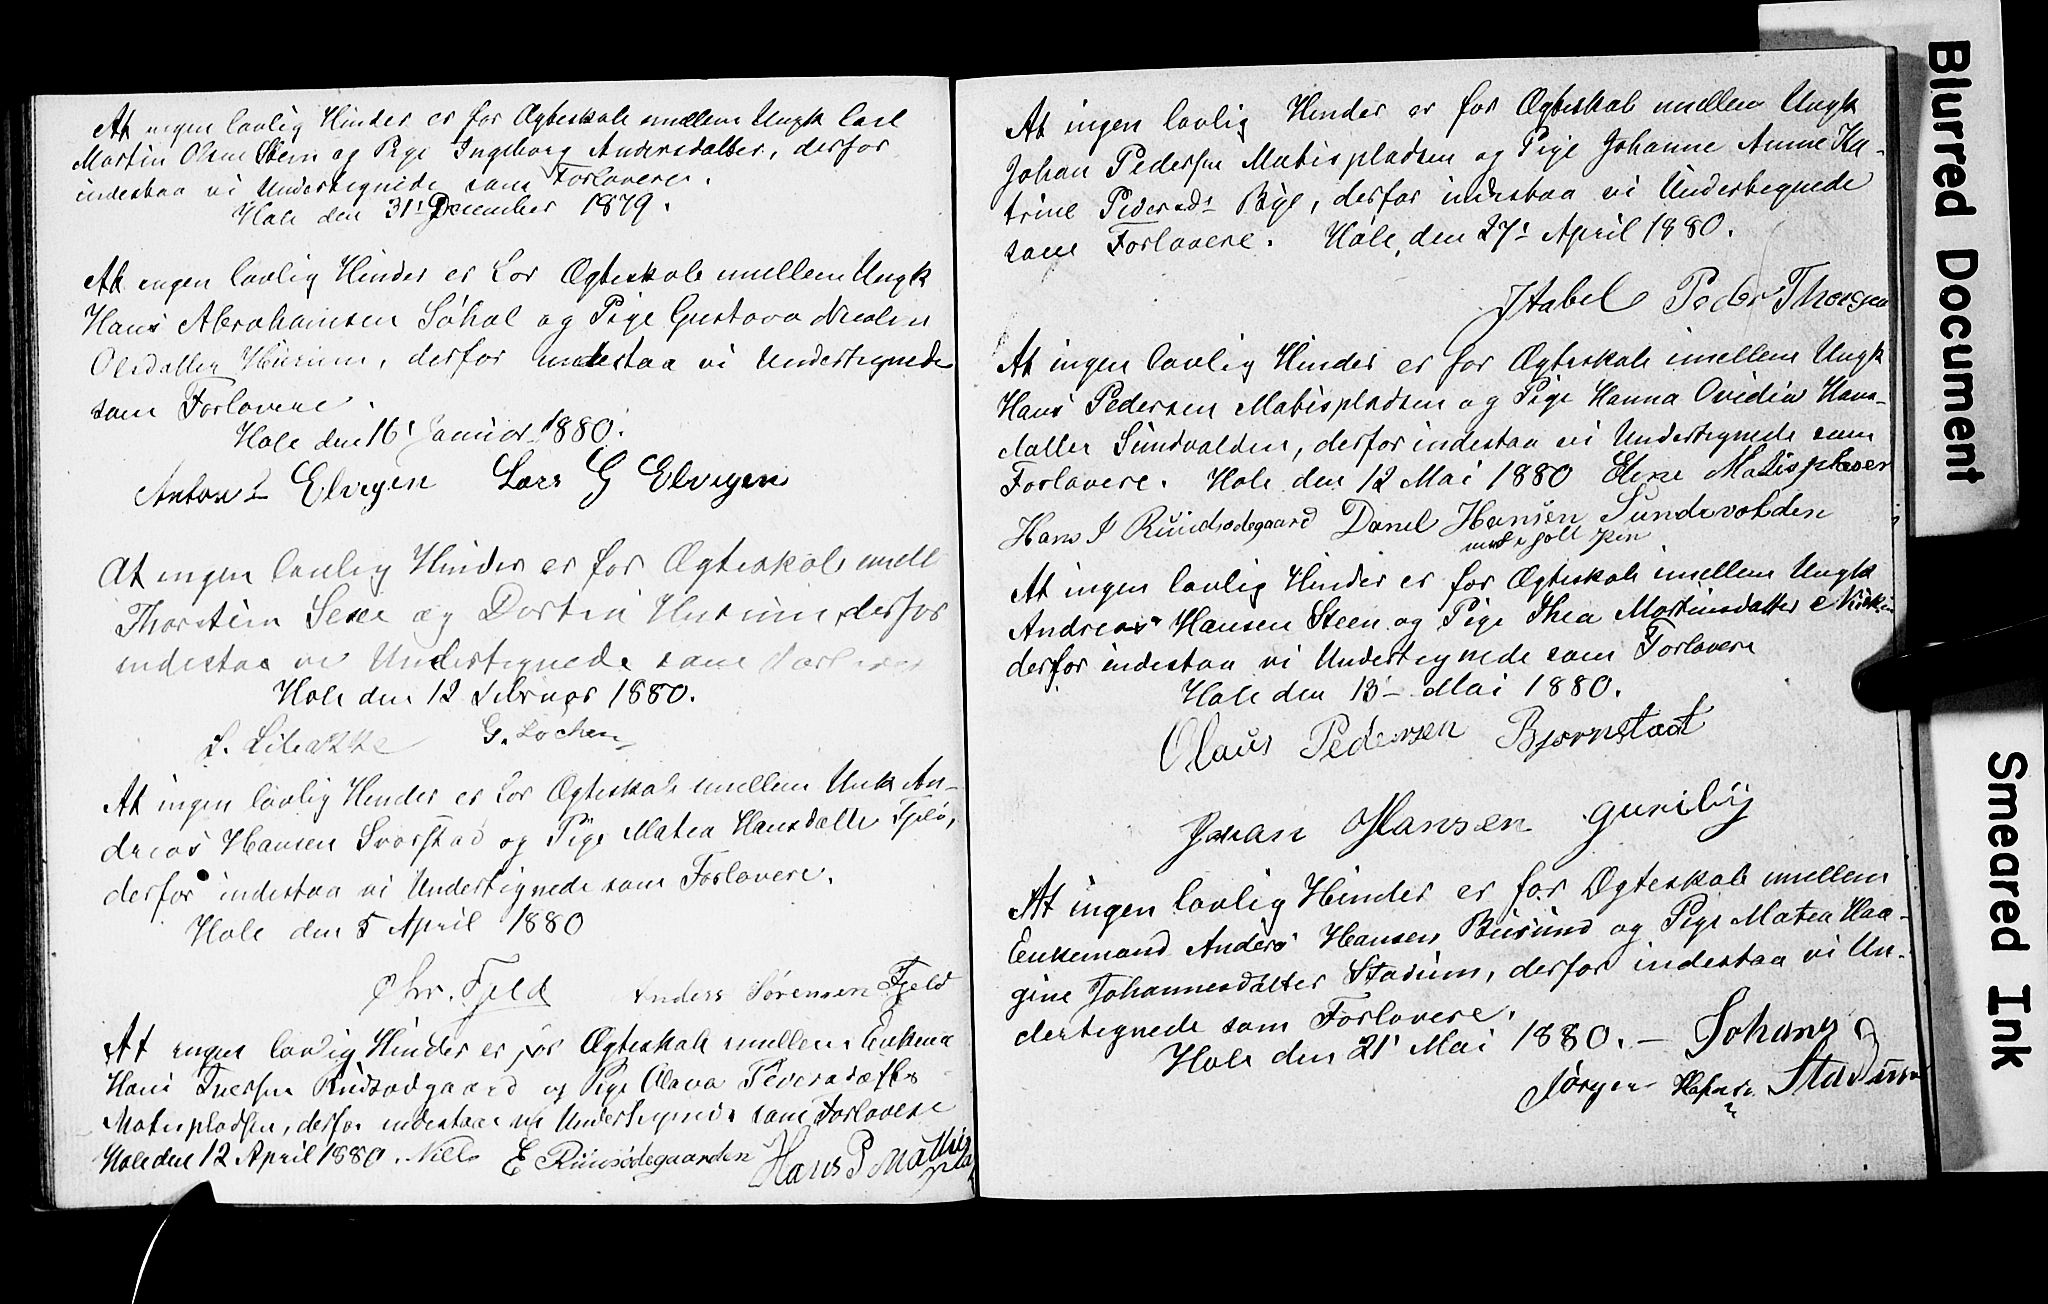 At ingen lovlig Hinder er for Ægteskab imellem Ungk Carl
Martin Olsen Steen og Pige Ingeborg Andersdatter, derfor
indestaa vi Undertegnede som Forlovere.
Hole den 31' December 1879.
At ingen lovlig Hinder er for Ægteskab imellem Ungk
Hans Abrahamsen Søhol og Pige Gustava Nicoline
Olsdatter, derfor indestaa vi Undertegnede
som Forlovere.
Hole den 16' Januar 1880.
Anton L Elvigen Lars G Elvigen
At ingen lovlig Hinder er for Ægteskab imell
Thorstein og derfor
indestaa vi Undertegnede som
Hole den 12 Februar 1880.
G. Løchen
At ingen lovlig Hinder er for Ægteskab imellem Unk An-
dreas Hansen Svarstad og Pige Matea Hansdatte
derfor indestaa vi Undertegnede som Forlovere.
Hole den 5 April 1880
Chr. Fjeld Anders Sørensen Fjeld
At ingen lovlig Hinder er for Ægteskab imellem Enkema
Hans Iversen Rudsødgaard og Pige Olava
derfor indestaa vi Undertegnede som Forlovere
Hole den 12 April 1880. Niels E Ruusødegaarden Hans P
At ingen lovlig Hinder er for Ægteskab imellem Ungk
Johan Pedersen Matispladsen og Pige Johanne Anne Ka-
trine Pedersd- Bye, derfor indestaa vi Undertegnede
som Forlovere. Hole, den 27' April 1880.
Peder
At ingen lovlig Hinder er for Ægteskab imellem Ungk
Hans Pedersen Matispladsen og Pige Hanna Ovidia Hans-
datter Sundvolden, derfor indestaa vi Undertegnede som
Forlovere. Hole den 12 Mai 1880
Hans I Ruudsødegaard Danel Hansen Sundevolden
med i holt pen
At ingen lovlig Hinder er for Ægteskab imellem Ungk
Andreas Hansen Steen og Pige Thea Martinsdatter
derfor indestaa vi Undertegnede som Forlovere
Hole den 13- Mai 1880.
Olaus Pedersen Bjørnstad
Johan Hansen Guriby
At ingen lovlig Hinder er for Ægteskab imellem
Enkemand Anders Hansen Busund og Pige Matea Haa-
gine Johannesdatter Stadum, derfor indestaa vi Un-
dertegnede som Forlovere.
Hole den 21' Mai 1880. - Johans
Jørgen Stadum
Blurred Document
Smeared Ink